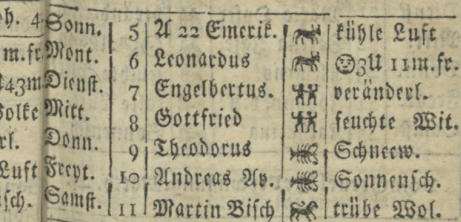 Sonn. 5 A 22 Emerik. kühle Luft
m.fr. Mont. 6 Leonardus 3U 11m.fr.
43m Dienst. 7 Engelbertus. veränderl.
Mitt. 8 Gottfried feuchte Wit.
rl. Donn. 9 Theodorus Schneew.
Luft Freyt. 10 Andreas Av. Sonnensch.
sch. Samst. 11 Martin Bisch trübe Wol.